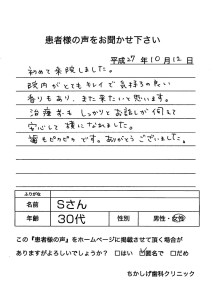 患者様の声をお聞かせ下さい
平成27年10月12日
初めて来院しました。
院内がとてもキレイで気持ちの良い
香りもあり、また来たいと思います。
治療前もしっかりとお話しが伺えて
安心して横になれました。
歯もピカピカです。ありがとうございました。
ふりがな
名前 Sさん
年齢 30代 性別 男性・女性
この『患者様の声』をホームページに掲載させて頂く場合が
ありますがよろしいでしょうか？ □はい ☑匿名で □だめ
ちかしげ歯科クリニック